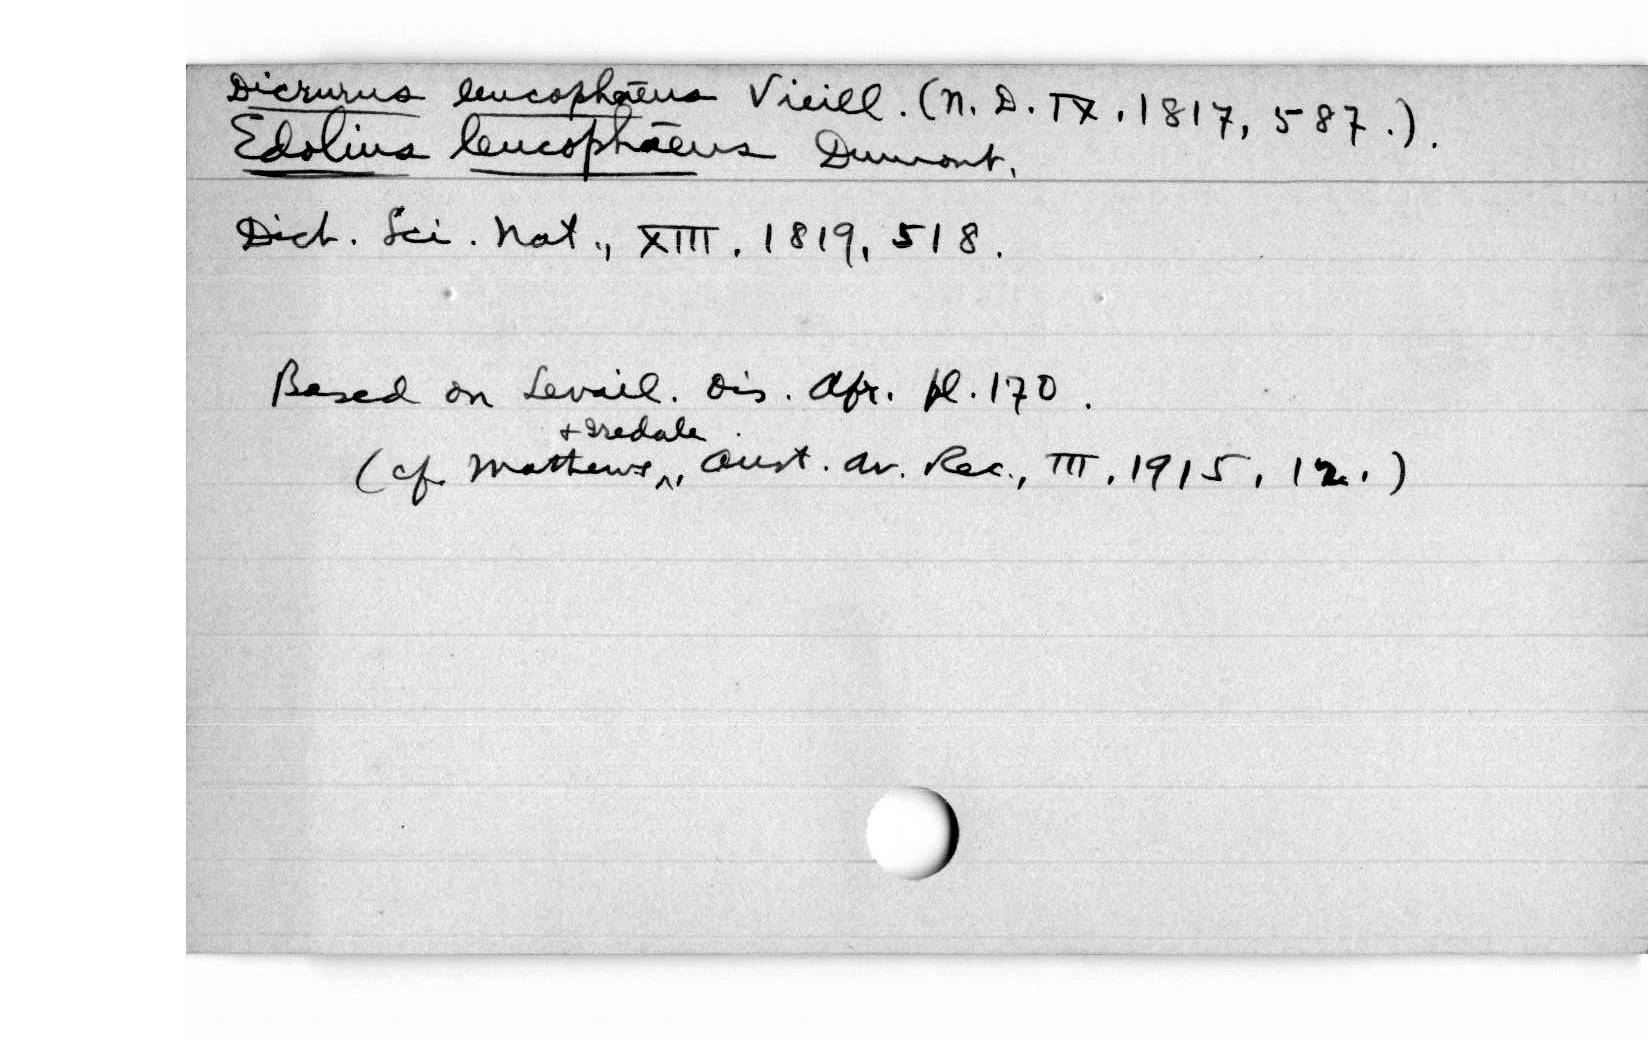 Dicrurus leucophāeus Vieill. (N. D. IX, 1817, 587.).
Edolius leucophāeus Dumont,
Dict. Sci. Nat., XIII, 1819, 518.
Based on Levail. Ois. Afr. pl. 170.
+ Iredale
(cf. Mathews ^, Aust. Av. Rec., III, 1915, 12.)